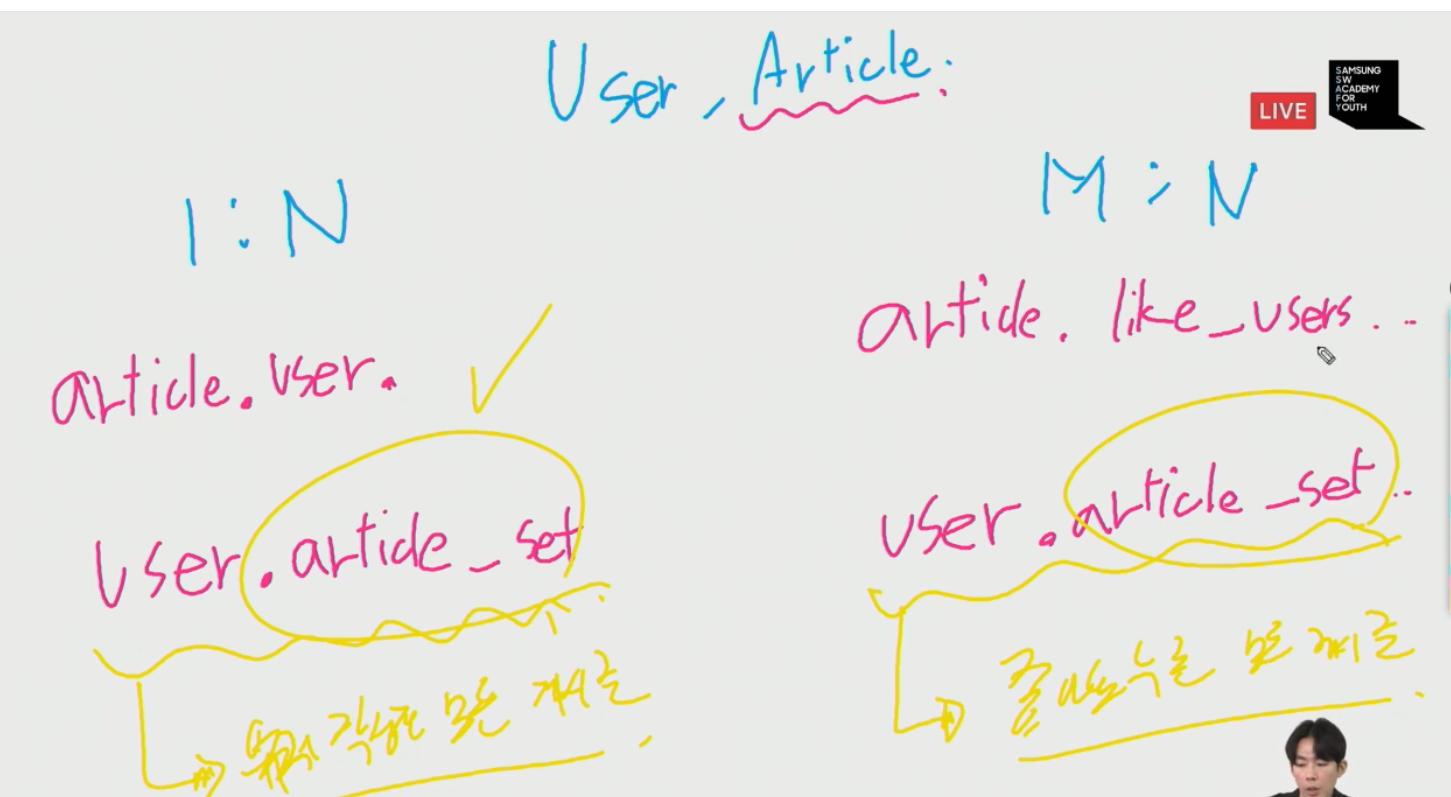 User, Article.
LIVE
SAMSUNG
SW
ACADEMY
FOR
YOUTH
1:N
article.user.
user.article_set
작성한 모든 게시글
M:N
article.like_users...
user.article_set..
좋아요 누른 모든 게시글